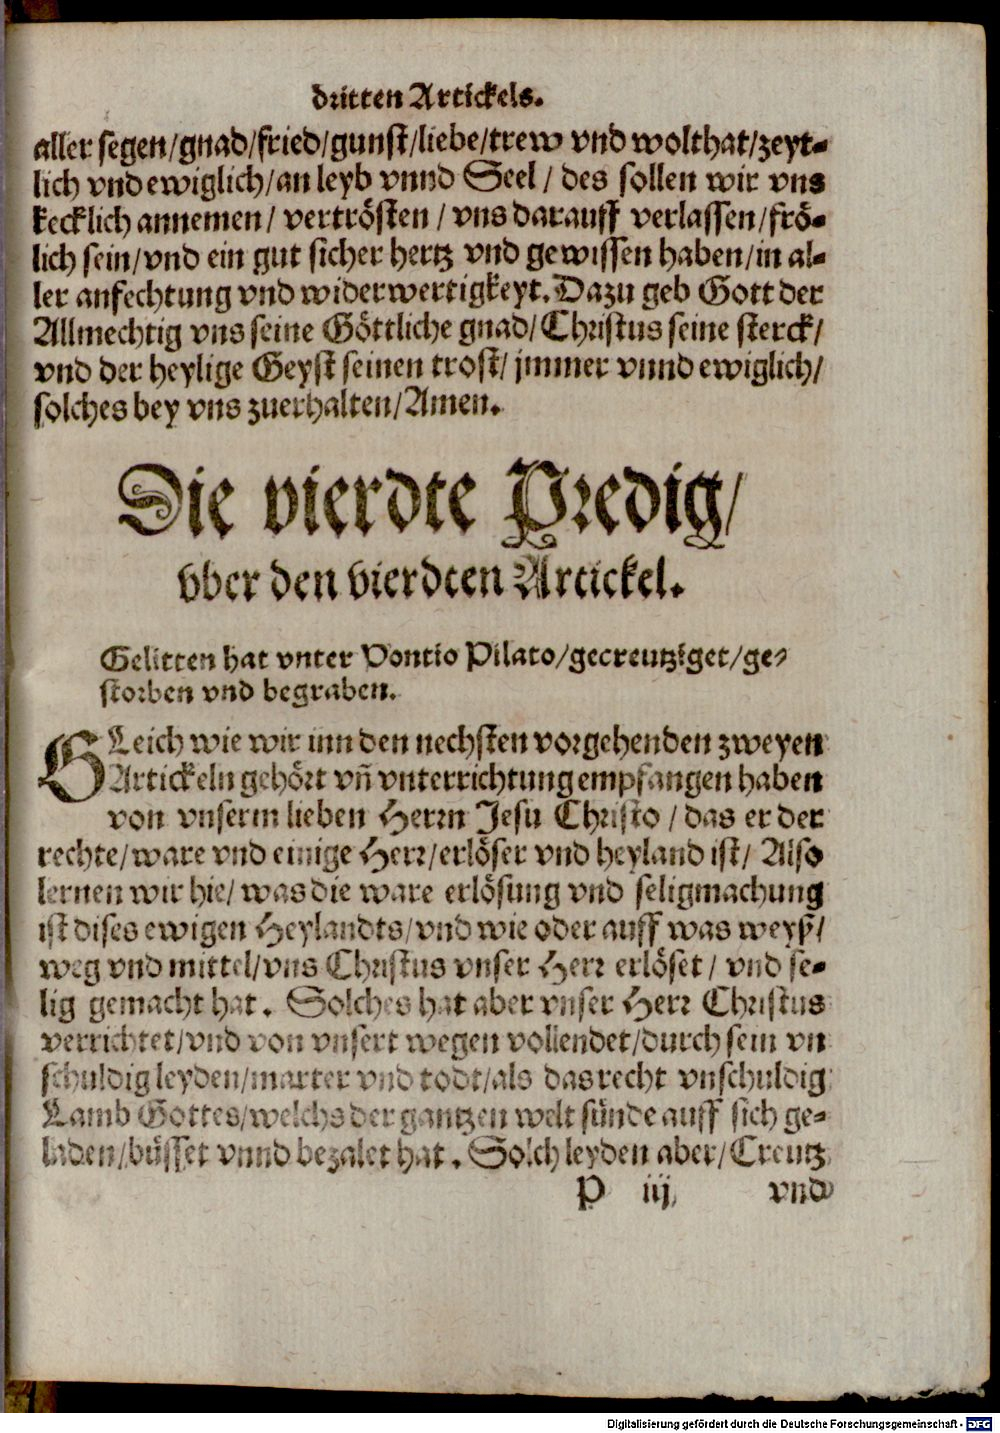 dritten Artickels.
aller segen/gnad/fried/gunst/liebe/trew vnd wolthat/zeyt-
lich vnd ewiglich/an leyb vnnd Seel / des sollen wir vns
kecklich annemen/ vertrösten / vns darauff verlassen/frö-
lich sein/vnd ein gut sicher hertz vnd gewissen haben/in al-
ler anfechtung vnd widerwertigkeyt. Dazu geb Gott der
Allmechtig vns seine Göttliche gnad/Christus seine sterck/
vnd der heylige Geyst seinen trost/ jmmer vnnd ewiglich/
solches bey vns zuerhalten/Amen.
Die vierdte Predig/
vber den vierdten Artickel.
Gelitten hat vnter Pontio Pilato/gecreutziget/ge-
storben vnd begraben.
GLeich wie wir inn den nechsten vorgehenden zweyen
Artickeln gehört vñ vnterrichtung empfangen haben
von vnserm lieben Herrn Jesu Christo / das er der
rechte/ware vnd einige Herr/erlöser vnd heyland ist/ Also
lernen wir hie/ was die ware erlösung vnd seligmachung
ist dises ewigen Heylandts/vnd wie oder auff was weyß/
weg vnd mittel/vns Christus vnser Herr erlöset / vnd se-
lig gemacht hat. Solches hat aber vnser Herr Christus
verrichtet/vnd von vnsert wegen vollendet/durch sein vn
schuldig leyden/marter vnd todt/als das recht vnschuldig
Lamb Gottes/welchs der gantzen welt sünde auff sich ge-
laden/büsset vnnd bezalet hat. Solch leyden aber/Creutz
P iij vnd
Digitalisierung gefördert durch die Deutsche Forschungsgemeinschaft - DFG